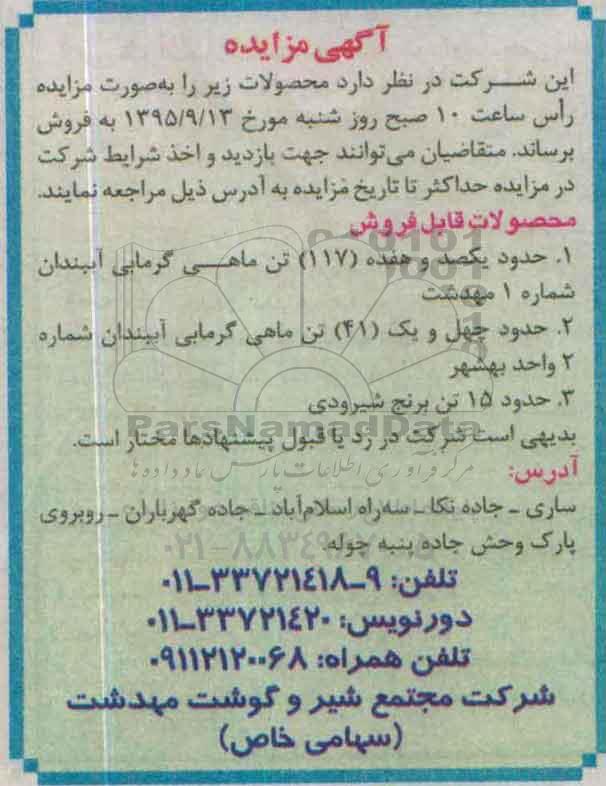 آگهی مزایده
این شرکت در نظر دارد محصولات زیر را به‌صورت مزایده
رأس ساعت ۱۰ صبح روز شنبه مورخ ۱۳۹۵/۹/۱۳ به فروش
برساند. متقاضیان می‌توانند جهت بازدید و اخذ شرایط شرکت
در مزایده حداکثر تا تاریخ مزایده به آدرس ذیل مراجعه نمایند.
محصولات قابل فروش
۱. حدود یکصد و هفده (۱۱۷) تن ماهی گرمابی آببندان
شماره ۱ مهدشت
۲. حدود چهل و یک (۴۱) تن ماهی گرمابی آببندان شماره
۲ واحد بهشهر
۳. حدود ۱۵ تن برنج شیرودی
ParsNamadData
بدیهی است شرکت در رد یا قبول پیشنهادها مختار است.
مرکز فرآوری اطلاعات پارس نماد داده ها
آدرس:
ساری ـ جاده نکا ـ سه‌راه اسلام‌آباد ـ جاده گهرباران ـ روبروی
پارک وحش جاده پنبه چوله.
تلفن: ۹ـ۳۳۷۲۱٤۱۸ـ۰۱۱
دورنویس: ۳۳۷۲۱٤۲۰ـ۰۱۱
تلفن همراه: ۰۹۱۱۲۱۲۰۰۶۸
شرکت مجتمع شیر و گوشت مهدشت
(سهامی خاص)